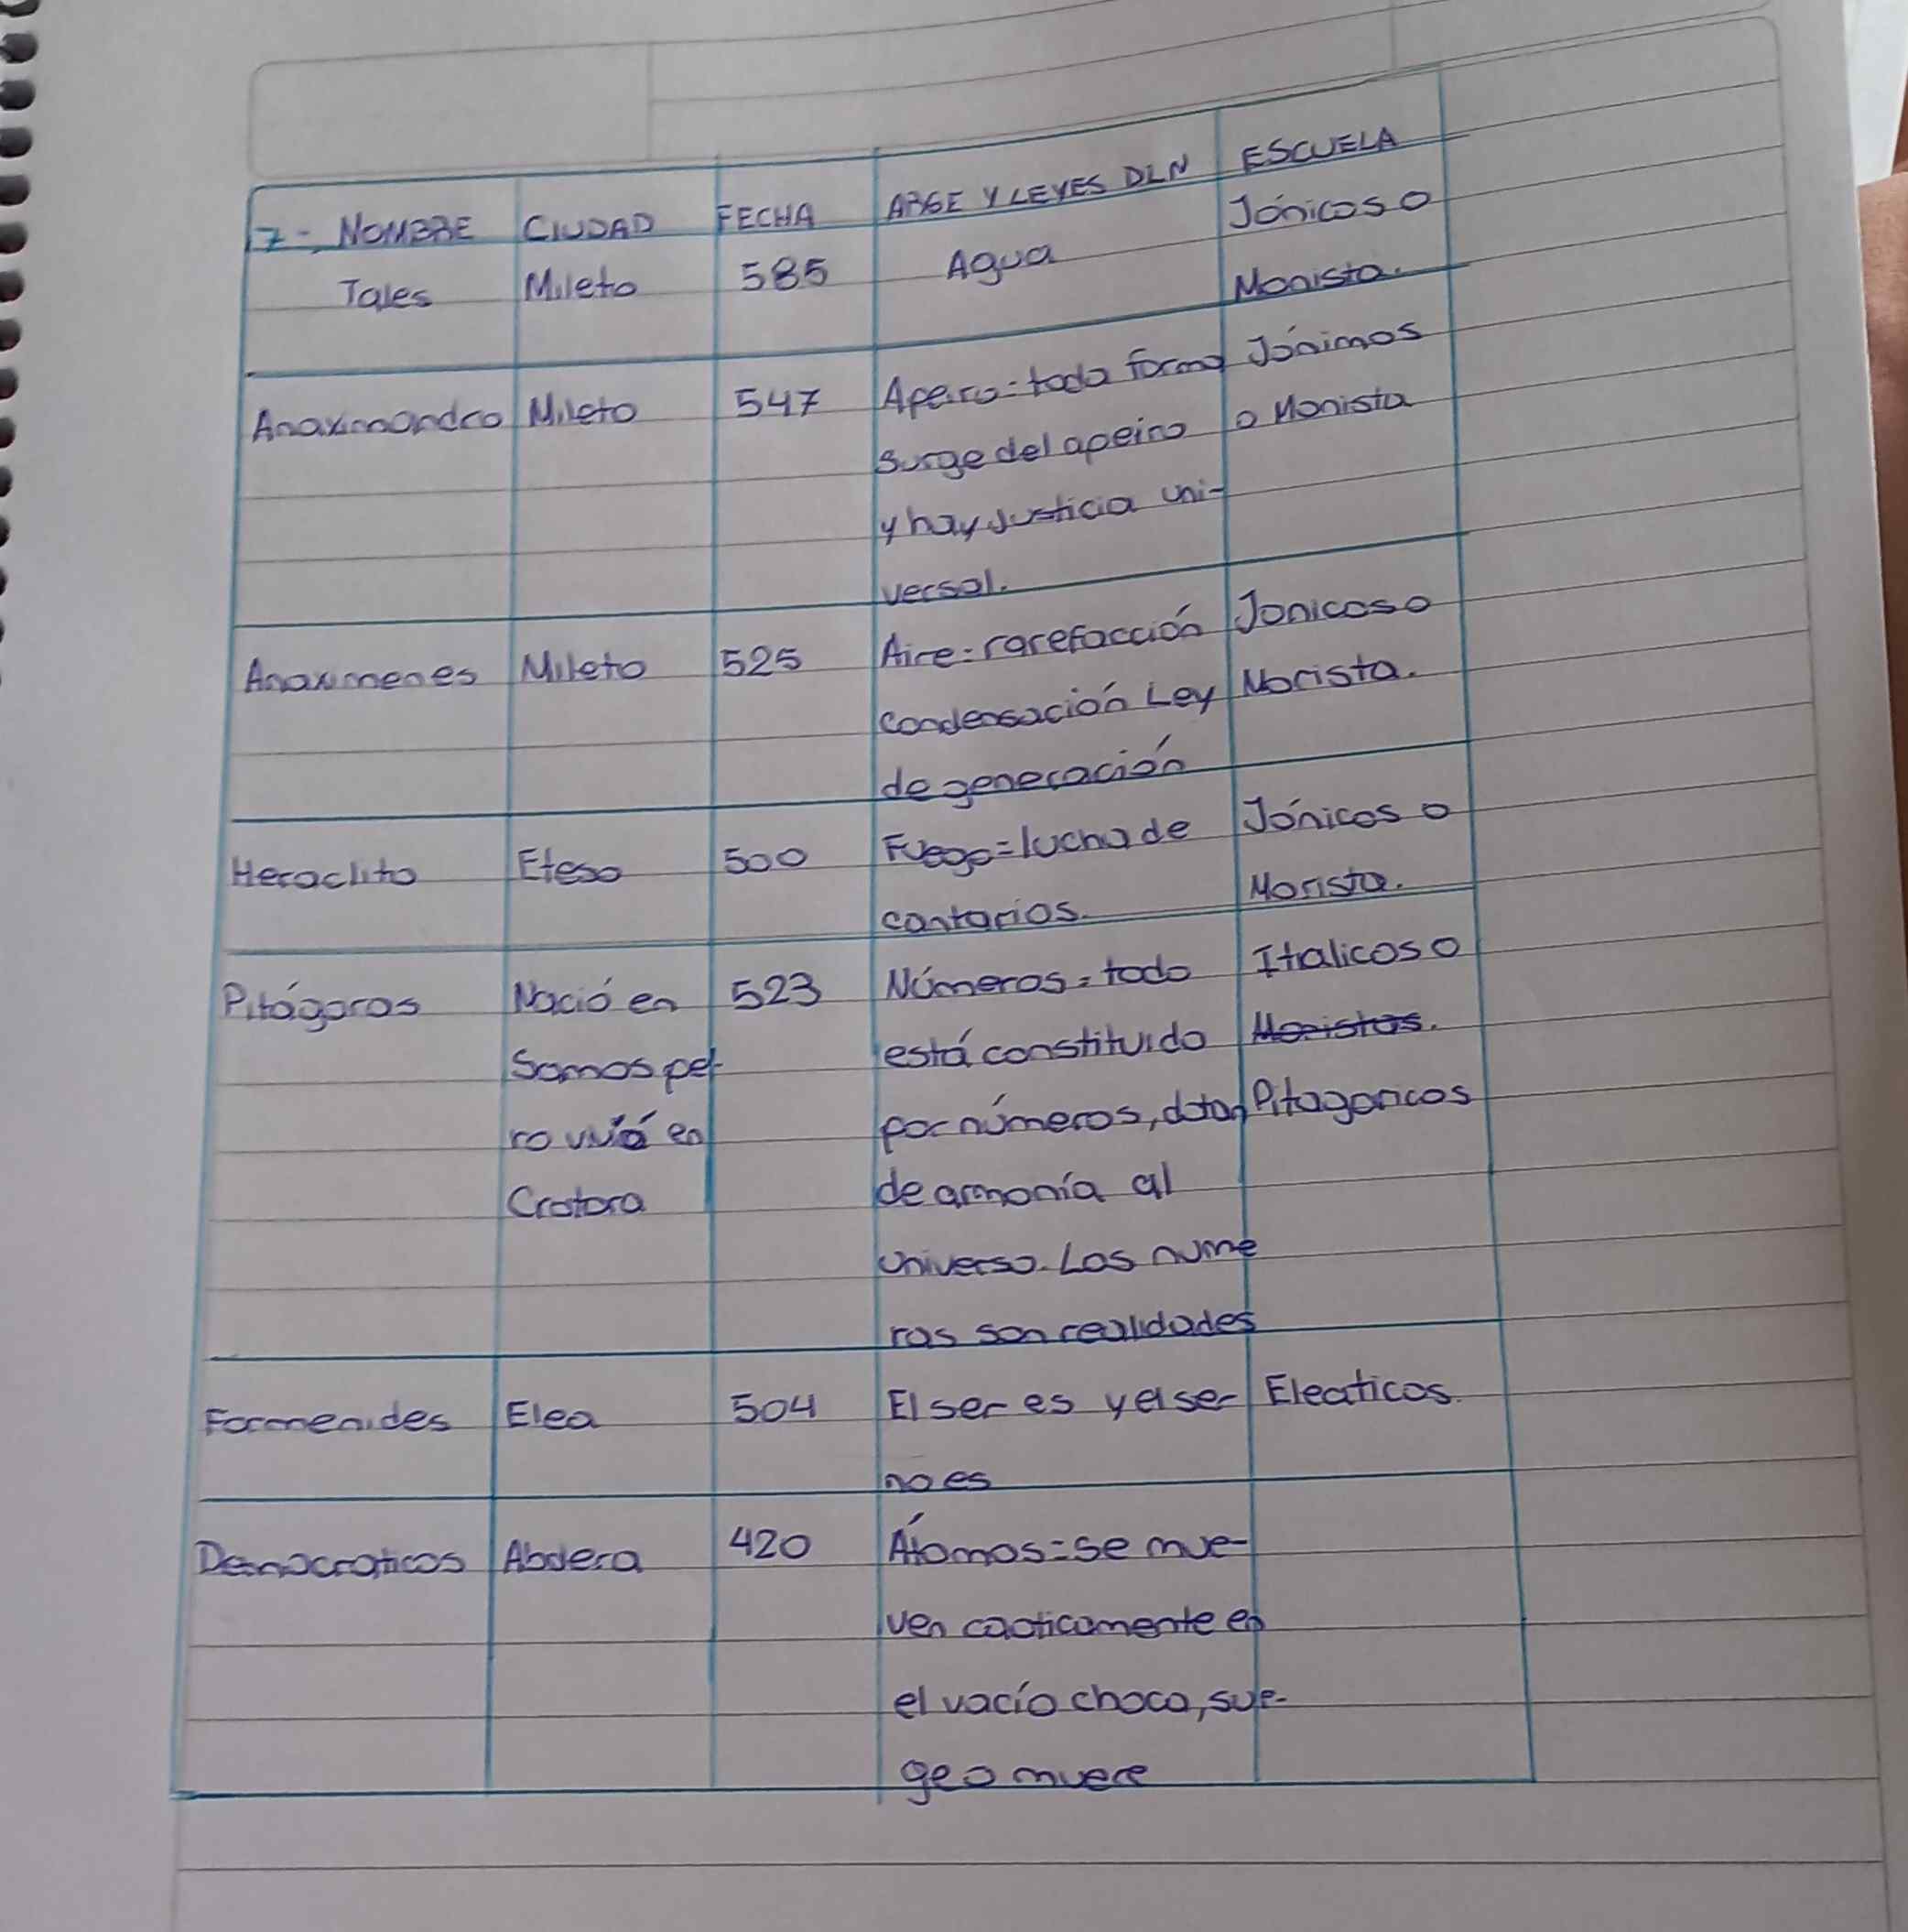 7- NOMBRE CIUDAD FECHA ARGE Y LEYES DLN ESCUELA
Tales Mileto 585 Agua Jónicos o
Monista.
Anaximandro Mileto 547 Apeiro=toda forma Jónimos
surge del apeiro o Monista
y hay justicia uni-
versal.
Anaximenes Mileto 525 Aire=rarefacción Jonicos o
condensación Ley Monista.
de generación
Heraclito Efeso 500 Fuego=lucha de Jónicos o
contarios. Monista.
Pitágoras Nació en 523 Números=todo Italicos o
Samos pe- está constituido Monistas.
ro vivió en por números, dotan Pitagoricos
Crotona de armonía al
universo. Los nume
ros son realidades
Formenides Elea 504 El ser es y el ser Eleaticos.
no es
Democraticos Abdera 420 Átomos=se mue-
ven caoticamente en
el vacío choca, sur-
ge o muere